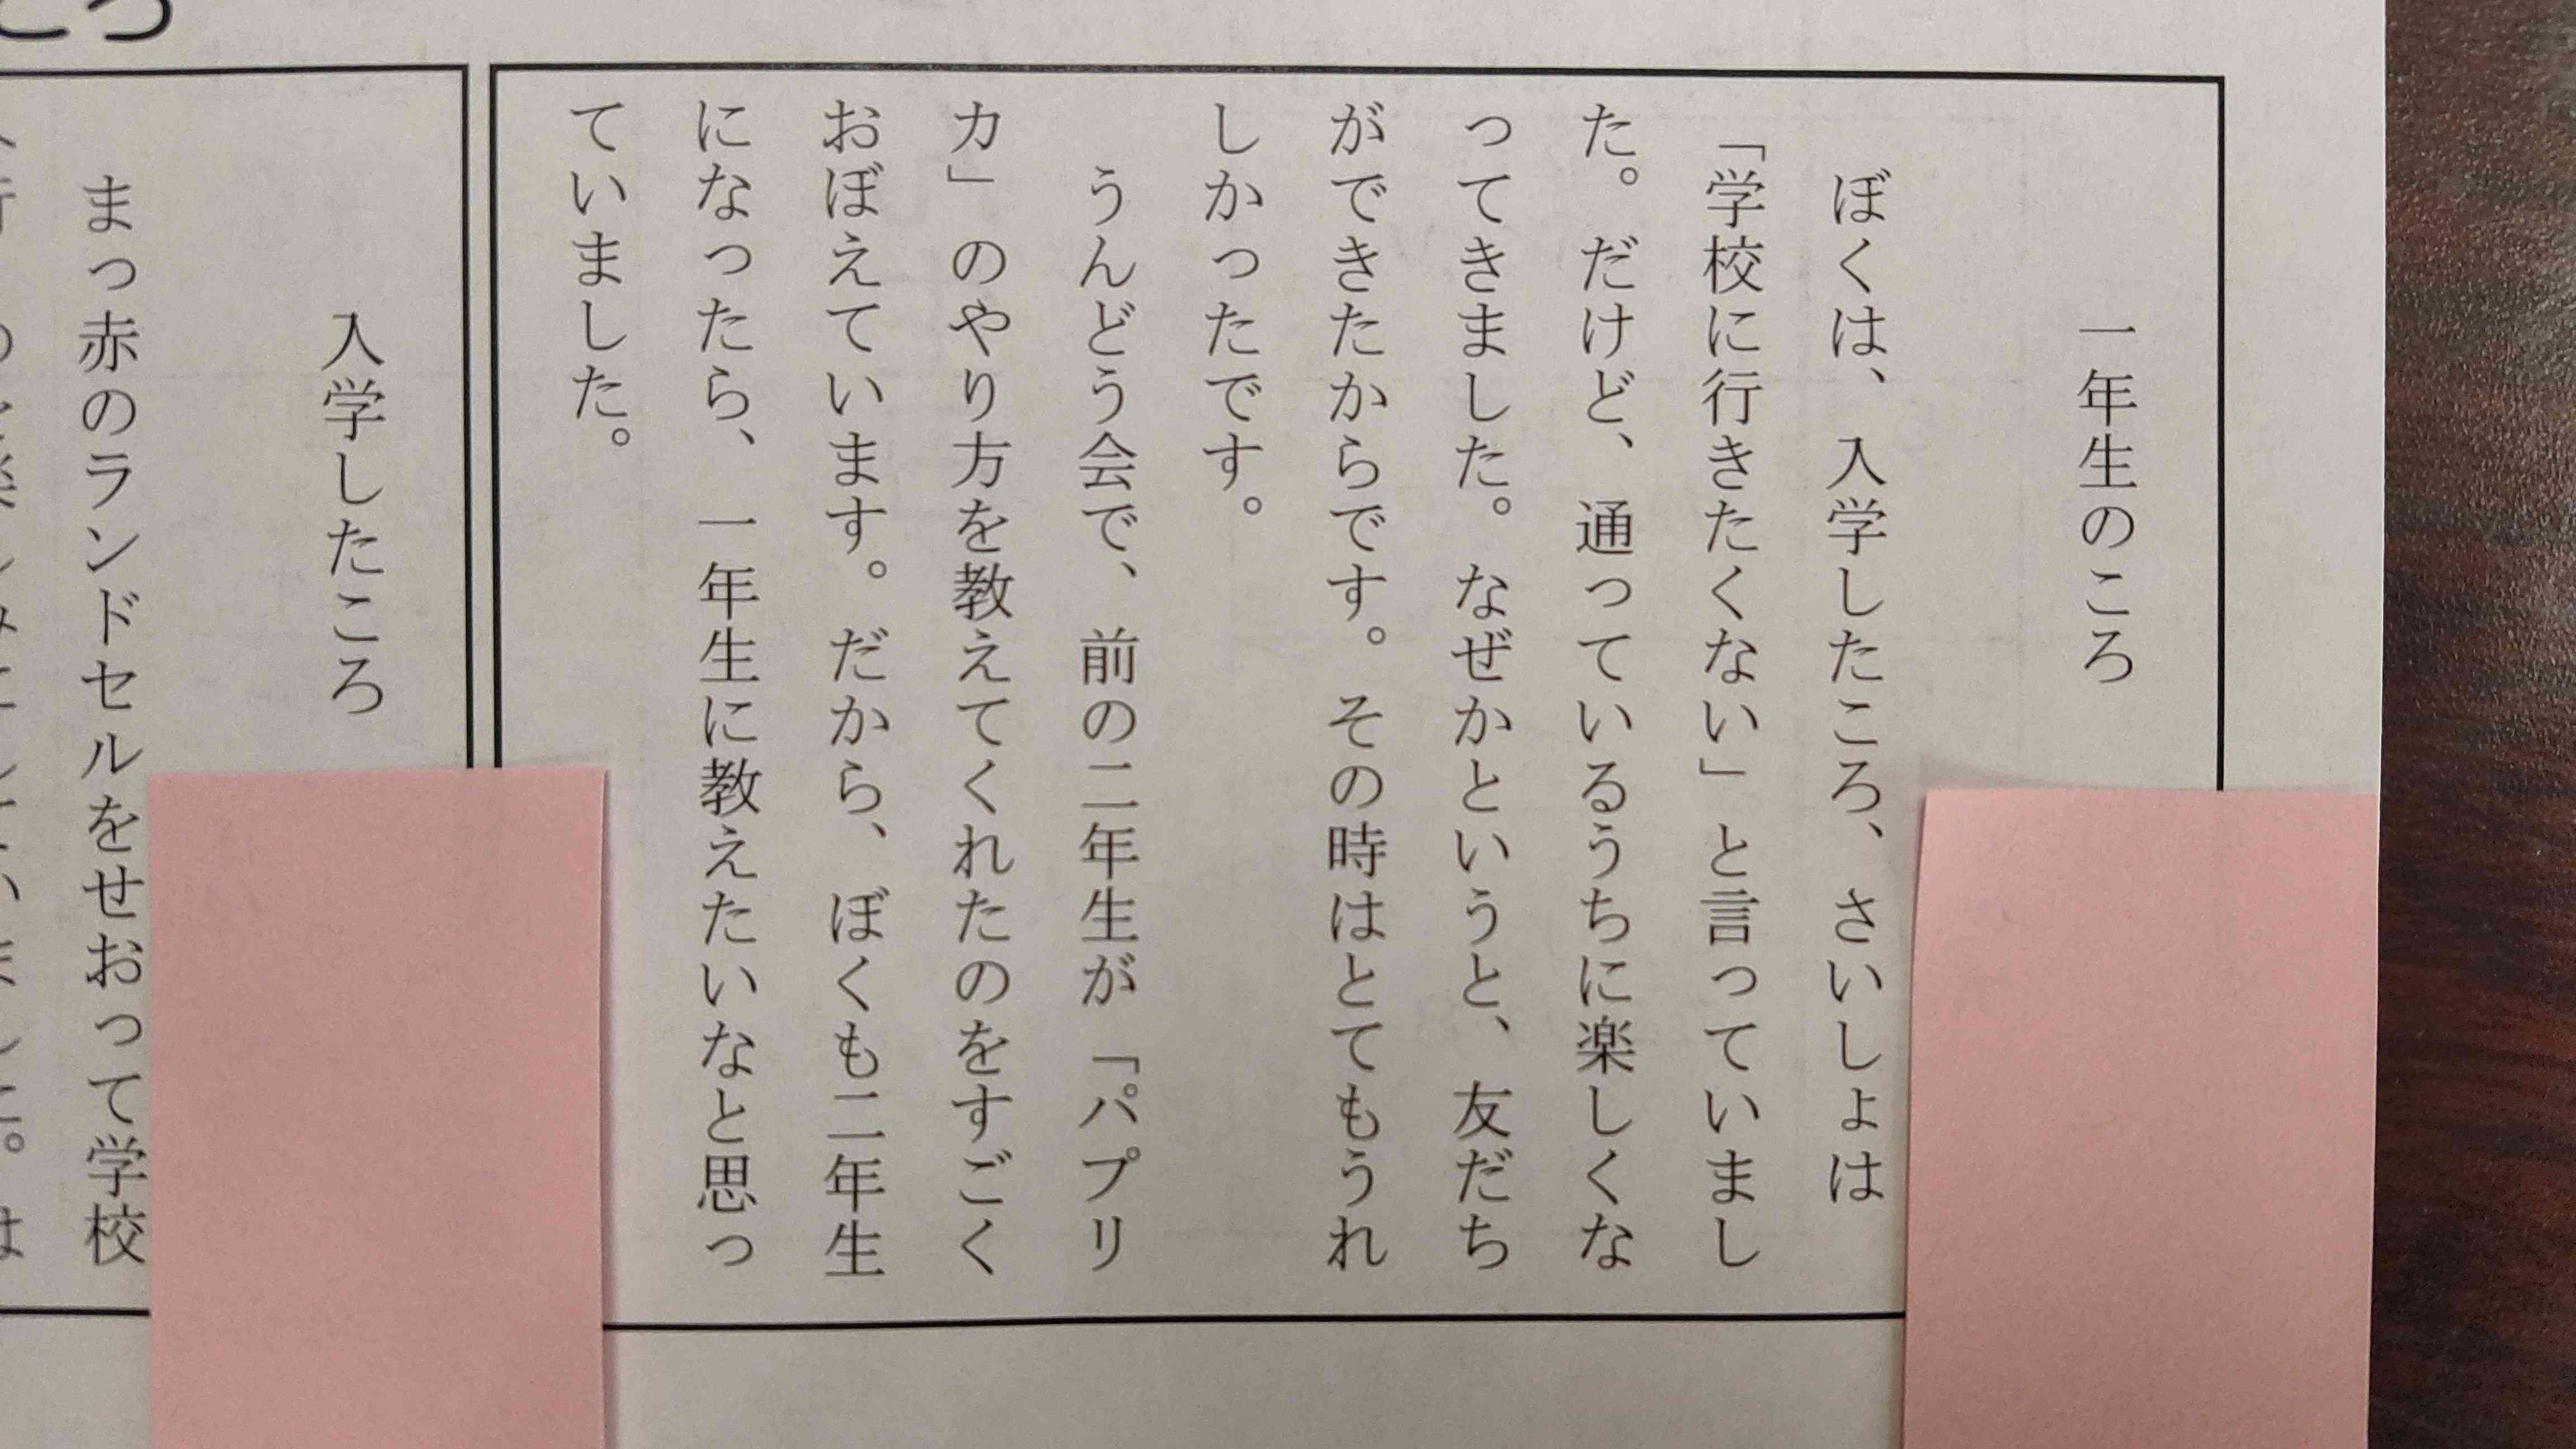 一年生のころ
ぼくは、入学したころ、さいしょは
「学校に行きたくない」と言っていまし
た。だけど、通っているうちに楽しくな
ってきました。なぜかというと、友だち
ができたからです。その時はとてもうれ
しかったです。
うんどう会で、前の二年生が「パプリ
カ」のやり方を教えてくれたのをすごく
おぼえています。だから、ぼくも二年生
になったら、一年生に教えたいなと思っ
ていました。
入学したころ
まっ赤のランドセルをせおって学校